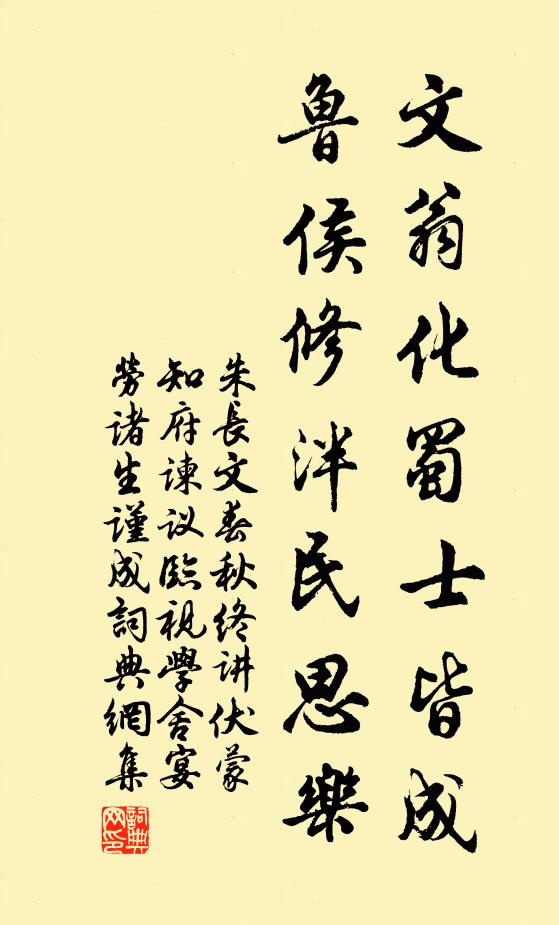 文翁化蜀士皆成
魯侯修泮民思樂
朱長文春秋终讲伏蒙
知府谏议臨視學舍宴
劳诸生谨成詞典網集
詞典
网印